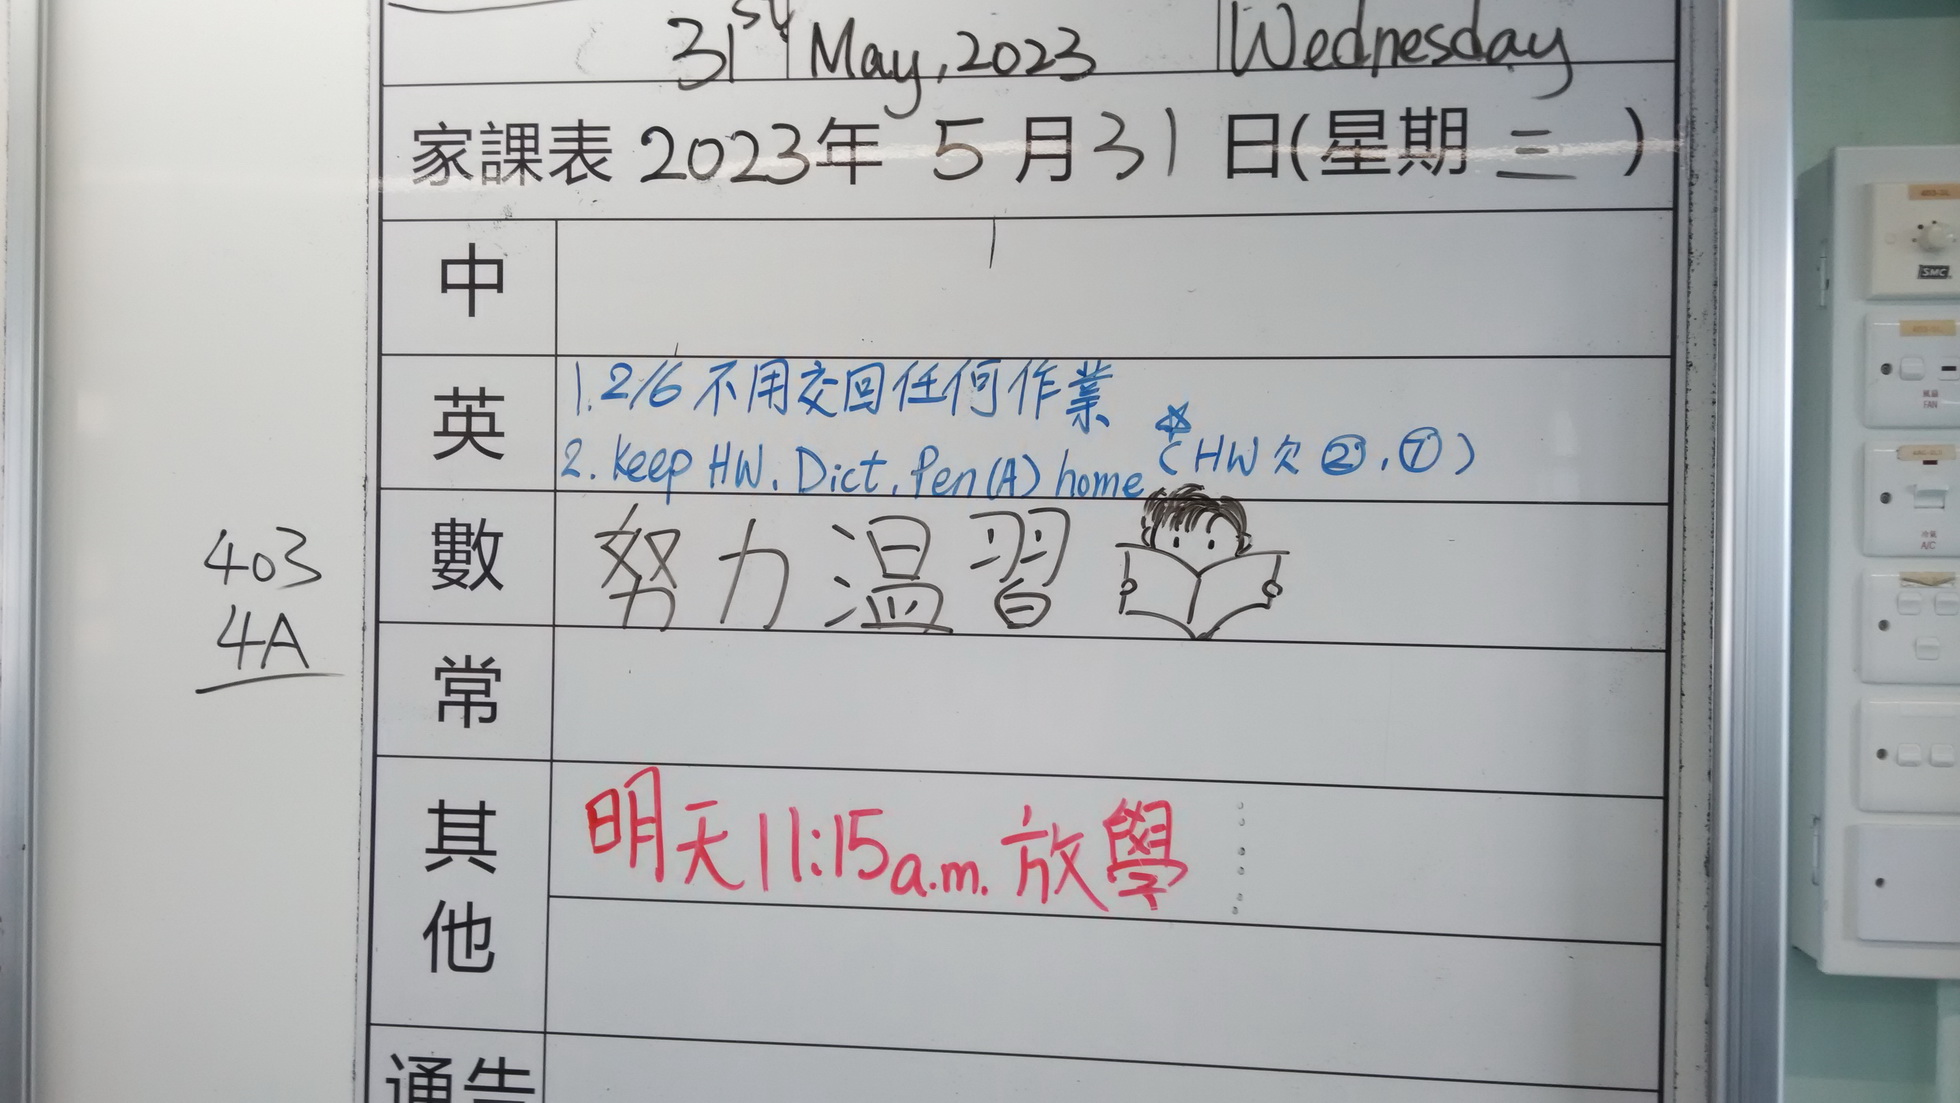 31st May, 2023 Wednesday
家課表 2023年 5月31日(星期三)
中
英
1. 2/6 不用交回任何作業
2. Keep HW, Dict, Pen(A) home (HW欠 ㉒, ⑦)
數 努力溫習
403
4A
常
其他
明天11:15a.m.放學
通告
SMC
FAN
A/C